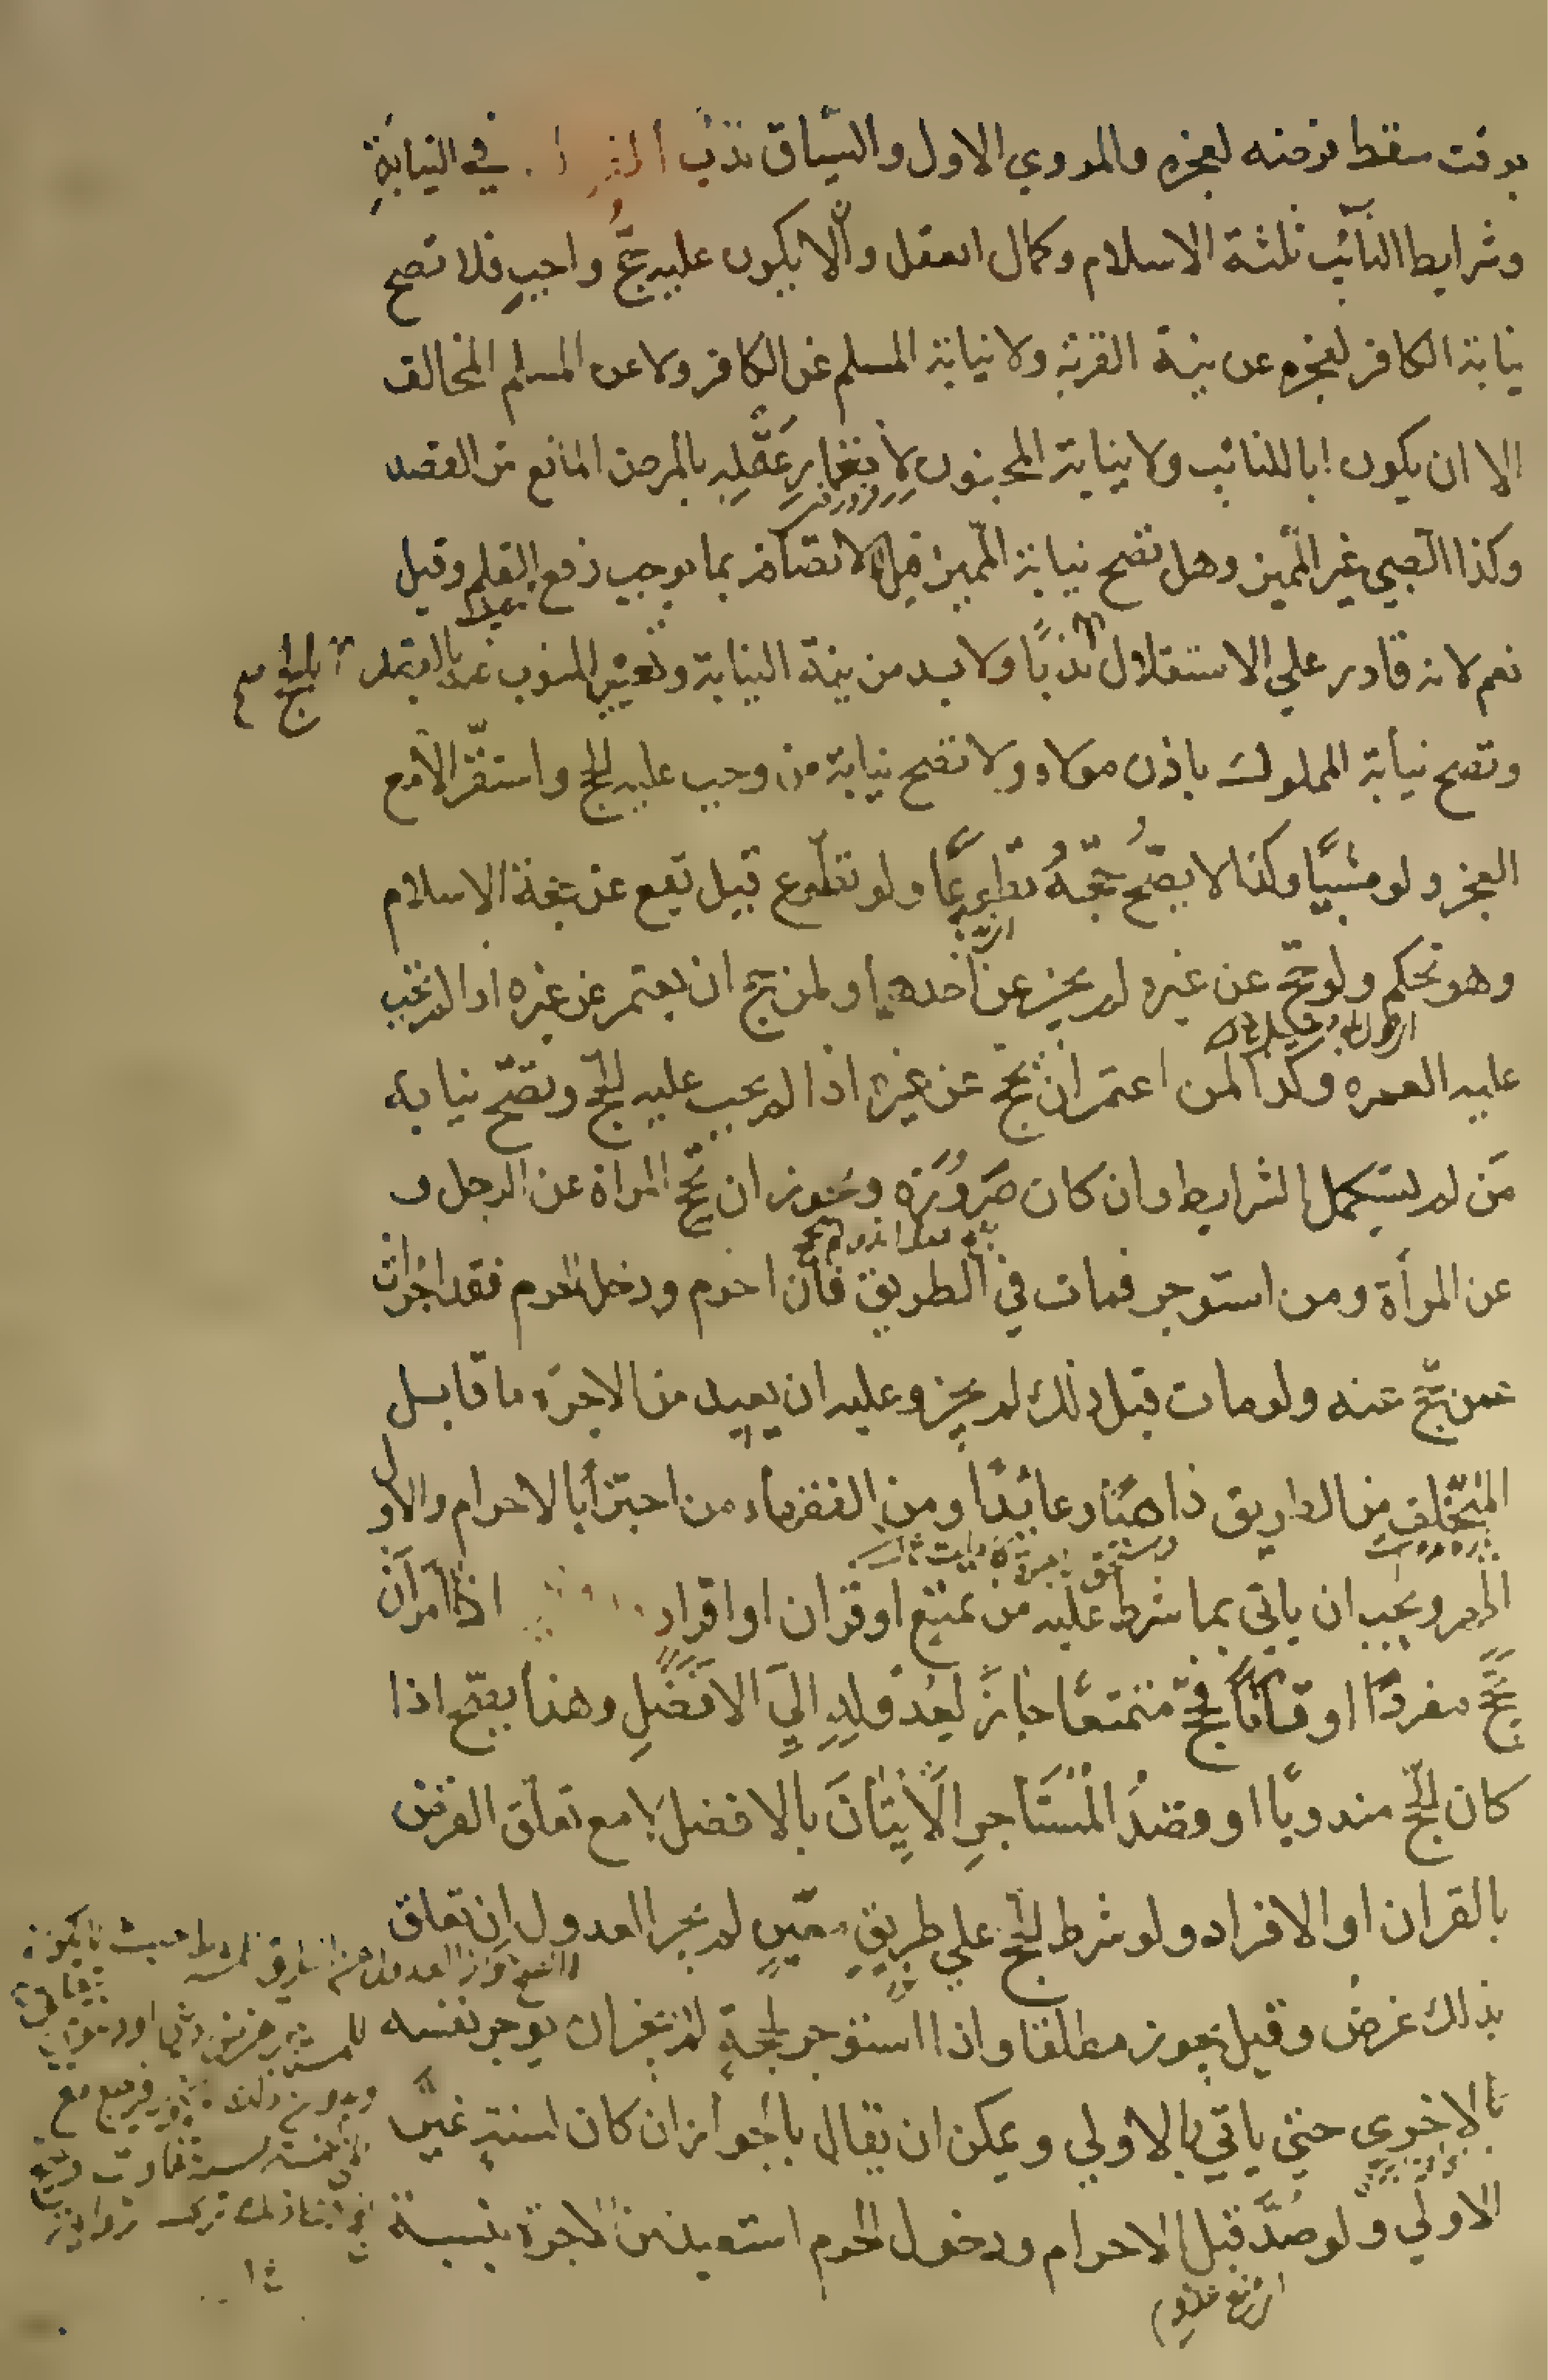 بوقت سقط فرضه لعجزه والمروي الاول والسياق ندب في النيابة
وشرايط النائب ثلثة الاسلام وكمال العقل والا يكون عليه حج واجب فلا تصح
نيابة الكافر لعجزه عن نية القربة ولا نيابة المسلم عن الكافر ولا عن المسلم المخالف
الا ان يكون ابا للنائب ولا نيابة المجنون لانغمار عقله بالمرض المانع من القصد
وكذا الصبي غير المميز وهل تصح نيابة المميز قيل لا لاتصافه بما يوجب رفع القلم وقيل
نعم لانه قادر علي الاستقلال بالحج ندبا ولا بد من نية النيابة وتعيين المنوب عنه بالقصد
وتصح نيابة المملوك باذن مولاه ولا تصح نيابة من وجب عليه الحج واستقر الا مع
العجز ولو مشيا وكذا لا يصح حجه تطوعا ولو تطوع قيل تقع عن حجة الاسلام
وهو تحكم ولو حج عن غيره لم يجز عن احدهما ولمن حج ان يعتمر عن غيره اذا لم تجب
عليه العمره وكذا لمن اعتمر ان يحج عن غيره اذا لم يجب عليه الحج وتصح نيابة
من لم يستكمل الشرايط وان كان صرورة ويجوز ان تحج المراة عن الرجل و
عن المرأة ومن استوجر فمات في الطريق فان احرم ودخل الحرم فقد اجزات
عمن حج عنه ولو مات قبل ذلك لم يجز وعليه ان يعيد من الاجرة ما قابل
المتخلف من الطريق ذاهبا وعائدا ومن الفقهاء من اجتزأ بالاحرام والاول
اظهر ويجب ان ياتي بما شرط عليه من تمتع او قران او افراد اذا امر ان
يحج مفردا او قارنا فحج متمتعا جاز لعدوله الي الافضل وهذا يصح اذا
كان الحج مندوبا او قصد المستاجر الاتيان بالافضل لا مع تعلق الفرض
بالقران او الافراد ولو شرط الحج علي طريق معين لم يجز العدول ان تعلق
بذلك غرض وقيل يجوز مطلقا واذا استوجر لحجة لم يجز ان يوجر نفسه
بالاخري حتي ياتي بالاولي ويمكن ان يقال بالجواز ان كان لسنة غير
الاولي ولو صد قبل الاحرام ودخول الحرم استعيد من الاجرة بنسبة